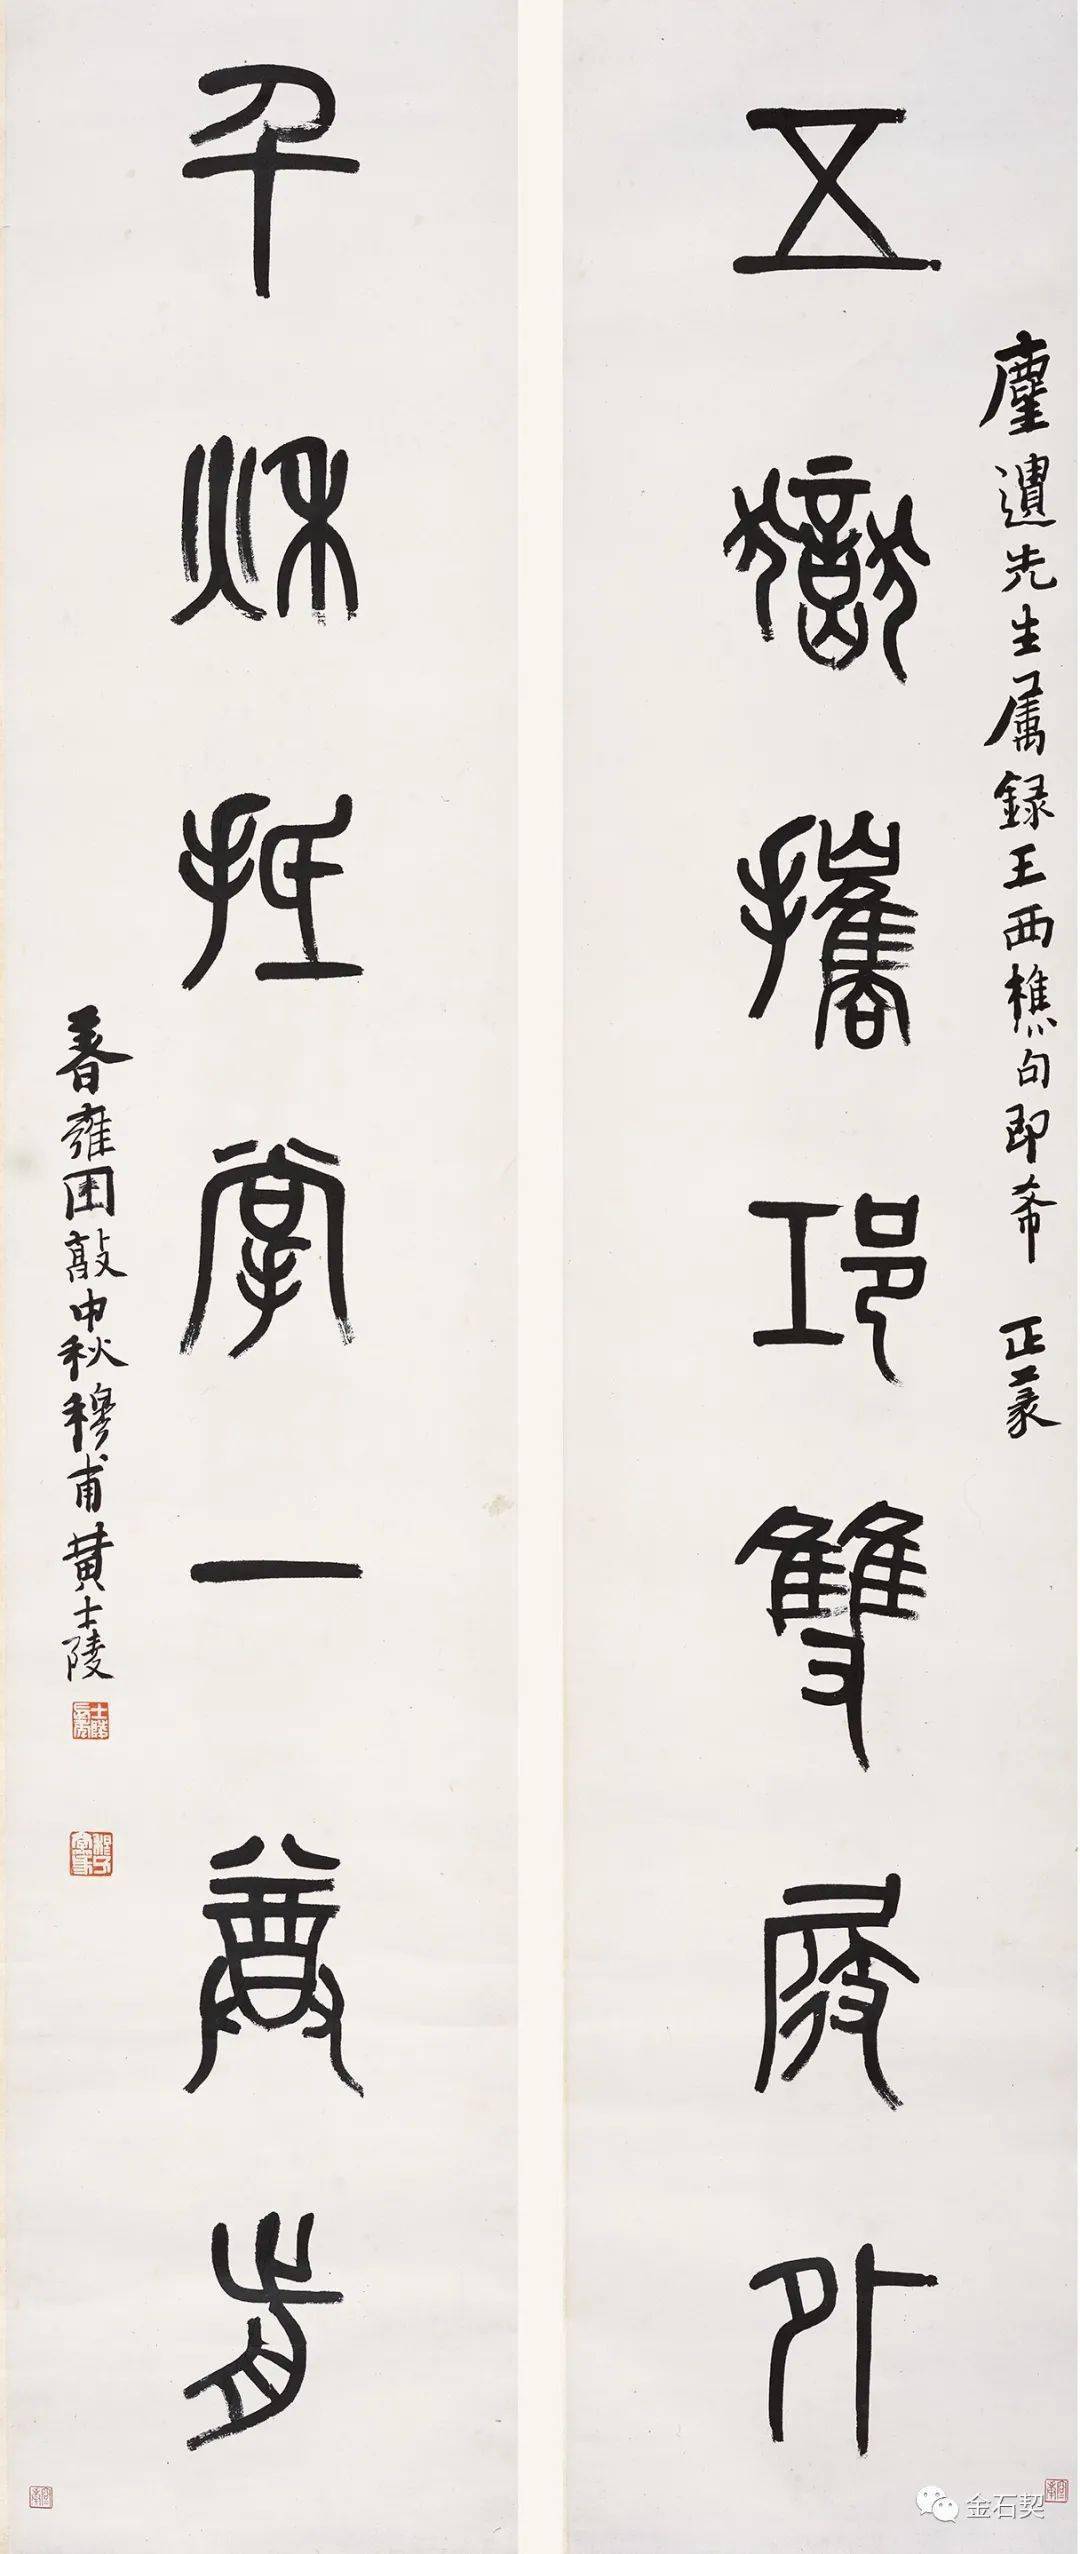 五嶽攜邛雙屐外
塵遺先生属録王西樵句即希 正篆
千秋抵掌一尊前
著雍困敦中秋穆甫黄士陵
金石契